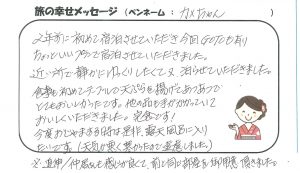 旅の幸せメッセージ（ペンネーム：カメちゃん）
2年前に初めて宿泊させていただき今回GOTOもあり
ちょっといいプランで宿泊させていただきました。
近い所で静かにゆっくりしたくて又泊らせていただきました。
食事も初めてテーブルで天ぷらを揚げたてあつあつで
とてもおいしかったです。他の品もすごくこっていて
おいしくいただきました。完食です！
今度おじゃまする時は是非、露天風呂に入り
たいです。（天気が悪く寒かったので遠慮しました）
※ 仲居さんも感じが良くて、前と同じ部屋を 頂きました。